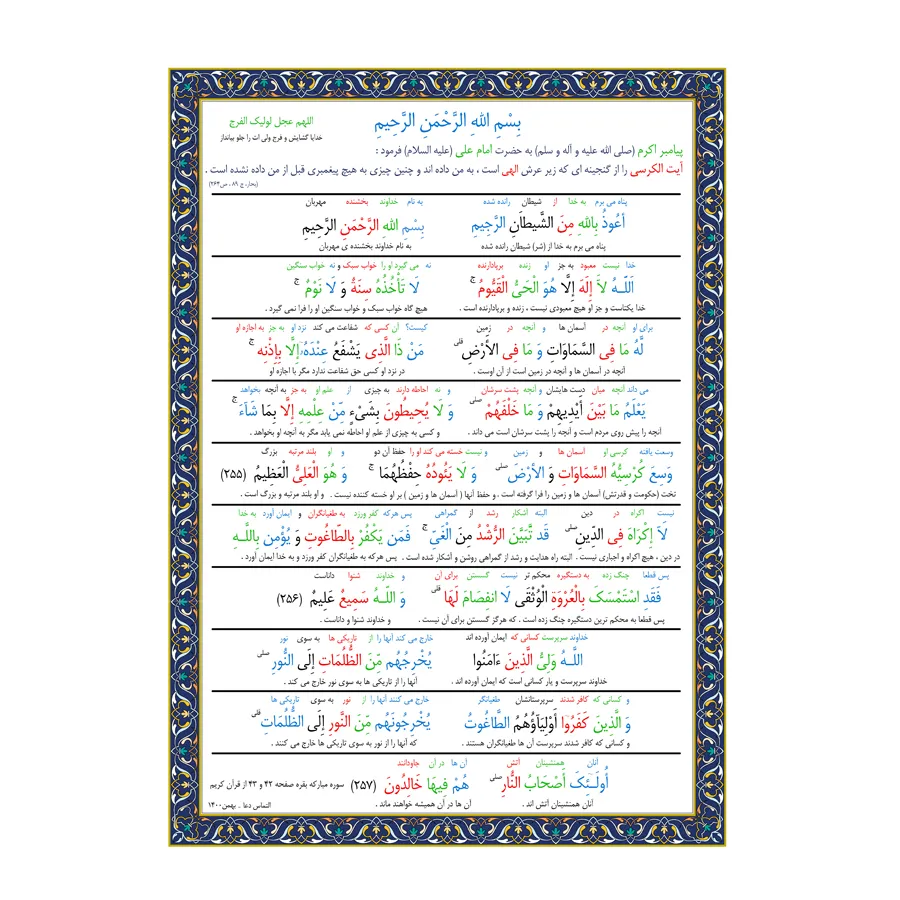 بِسْمِ اللهِ الرَّحْمَنِ الرَّحِيمِ
اللهم عجل لولیک الفرج
خدایا گشایش و فرج ولی ات را جلو بیانداز
پیامبر اکرم (صلی الله علیه و آله و سلم) به حضرت امام علی (علیه السلام) فرمود :
آیت الکرسی را از گنجینه ای که زیر عرش الهی است ، به من داده اند و چنین چیزی به هیچ پیغمبری قبل از من داده نشده است .
(بحار، ج ۸۹ ، ص۲۶۴)
پناه می برم به خدا از شیطان رانده شده به نام خداوند بخشنده مهربان
أعُوذُ بِاللهِ مِنَ الشَّيطَانِ الرَّجِيمِ بِسْمِ اللهِ الرَّحْمَنِ الرَّحِيمِ
پناه می برم به خدا از (شر) شیطان رانده شده به نام خداوند بخشنده ی مهربان
خدا نیست معبود به جز او زنده برپادارنده نه می گیرد او را خواب سبک و نه خواب سنگین
اَللَّـهُ لاَ إِلَهَ إِلَّا هُوَ الْحَيُّ الْقَيُّومُ ۚ لَا تَأْخُذُهُ سِنَةٌ وَ لَا نَوْمٌ ۚ
خدا یکتاست و جز او هیچ معبودی نیست ، زنده و برپادارنده است . هیچ گاه خواب سبک و خواب سنگین او را فرا نمی گیرد .
برای او آنچه در آسمان ها و آنچه در زمین کیست؟ آن کسی که شفاعت می کند نزد او به جز به اجازه او
لَّهُ مَا فِی السَّمَاوَاتِ وَ مَا فِی الأَرْضِ ۗ مَنْ ذَا الَّذِی یَشْفَعُ عِنْدَهُ إِلَّا بِإِذْنِهِ ۚ
آنچه در آسمان ها و آنچه در زمین است از آن اوست . در نزد او کسی حق شفاعت ندارد مگر با اجازه او
می داند آنچه میان دست هایشان و آنچه پشت سرشان و نه احاطه دارند به چیزی از علم او به جز به آنچه بخواهد
یَعْلَمُ مَا بَیْنَ أَیْدِیهِمْ وَ مَا خَلْفَهُمْ ۖ وَ لَا یُحِیطُونَ بِشَیْءٍ مِنْ عِلْمِهِ إِلَّا بِمَا شَآءَ ۚ
آنچه را پیش روی مردم است و آنچه را پشت سرشان است می داند . و کسی به چیزی از علم او احاطه نمی یابد مگر به آنچه او بخواهد .
وسعت یافته کرسی او آسمان ها و زمین و نیست خسته می کند او را حفظ آن دو و او بلند مرتبه بزرگ
وَسِعَ كُرْسِيُّهُ السَّمَاوَاتِ وَ الأَرْضَ ۖ وَ لَا يَئُودُهُ حِفْظُهُمَا ۚ وَ هُوَ الْعَلِيُّ الْعَظِيمُ (۲۵۵)
تخت (حکومت و قدرتش) آسمان ها و زمین را فرا گرفته است . و حفظ آنها ( آسمان ها و زمین ) بر او خسته کننده نیست . و او بلند مرتبه و بزرگ است .
نیست اکراه در دین البته آشکار رشد از گمراهی پس هرکه کفر ورزد به طغیانگران و ایمان آورد به خدا
لاَ إِكْرَاهَ فِی الدِّینِ ۖ قَد تَّبَیَّنَ الرُّشْدُ مِنَ الْغَیِّ ۚ فَمَن یَکْفُرْ بِالطَّاغُوتِ وَ یُؤْمِن بِاللَّـهِ
در دین ، هیچ اکراه و اجباری نیست . البته راه هدایت و رشد از گمراهی روشن و آشکار شده است . پس هرکه به طغیانگران کفر ورزد و به خدا ایمان آورد .
پس قطعا چنگ زده به دستگیره محکم تر نیست گسستن برای آن و خداوند شنوا داناست
فَقَدِ اسْتَمْسَکَ بِالْعُرْوَةِ الْوُثْقَی لَا انفِصَامَ لَهَا ۗ وَ اللَّـهُ سَمِیعٌ عَلِیمٌ (۲۵۶)
پس قطعا به محکم ترین دستگیره چنگ زده است . که هرگز گسستن برای آن نیست . و خداوند شنوا و داناست .
خداوند سرپرست کسانی که ایمان آورده اند خارج می کند آنها را از تاریکی ها به سوی نور
اللَّـهُ وَلِیُّ الَّذِینَ ءَامَنُوا یُخْرِجُهُم مِّنَ الظُّلُمَاتِ إِلَی النُّورِ ۖ
خداوند سرپرست و یار کسانی است که ایمان آورده اند . آنها را از تاریکی ها به سوی نور خارج می کند .
و کسانی که کافر شدند سرپرستانشان طغیانگر خارج می کنند آنها را از نور به سوی تاریکی ها
وَ الَّذِینَ کَفَرُوا أَوْلِیَآؤُهُمُ الطَّاغُوتُ یُخْرِجُونَهُم مِّنَ النُّورِ إِلَی الظُّلُمَاتِ ۗ
و کسانی که کافر شدند سرپرست آن ها طغیانگران هستند . که آنها را از نور به سوی تاریکی ها خارج می کنند .
آنان همنشینان آتش آن ها در آن جاودانند
أُولَـئِکَ أَصْحَابُ النَّارِ ۖ هُمْ فِیهَا خَالِدُونَ (۲۵۷) سوره مبارکه بقره صفحه ۴۲ و ۴۳ از قرآن کریم
آنان همنشینان آتش اند . آن ها در آن همیشه خواهند ماند . التماس دعا . بهمن۱۴۰۰